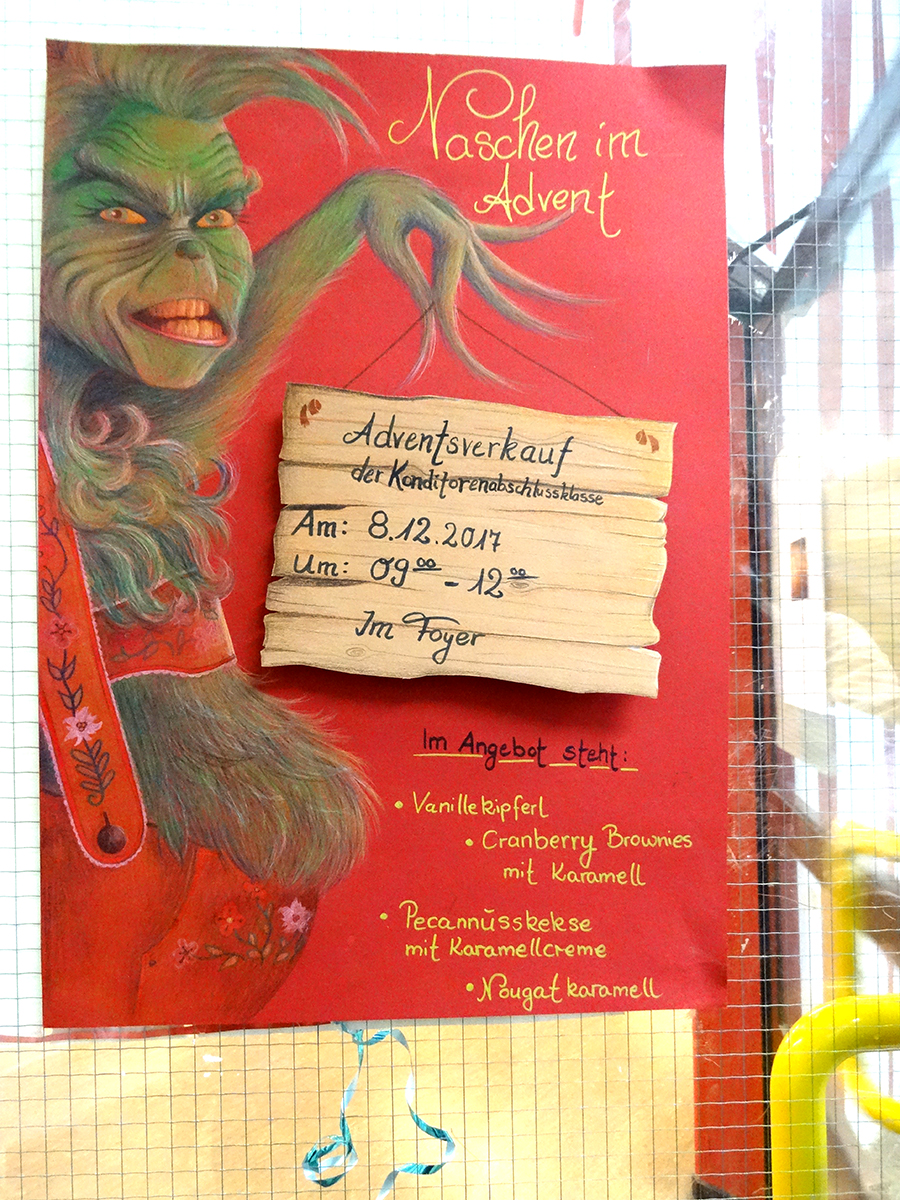 Naschen im
Advent
Adventsverkauf
der Konditorenabschlussklasse
Am: 8.12.2017
Um: 09⁰⁰ - 12⁰⁰
Im Foyer
Im Angebot steht:
• Vanillekipferl
• Cranberry Brownies
mit Karamell
• Pecannüsskekse
mit Karamellcreme
• Nougatkaramell